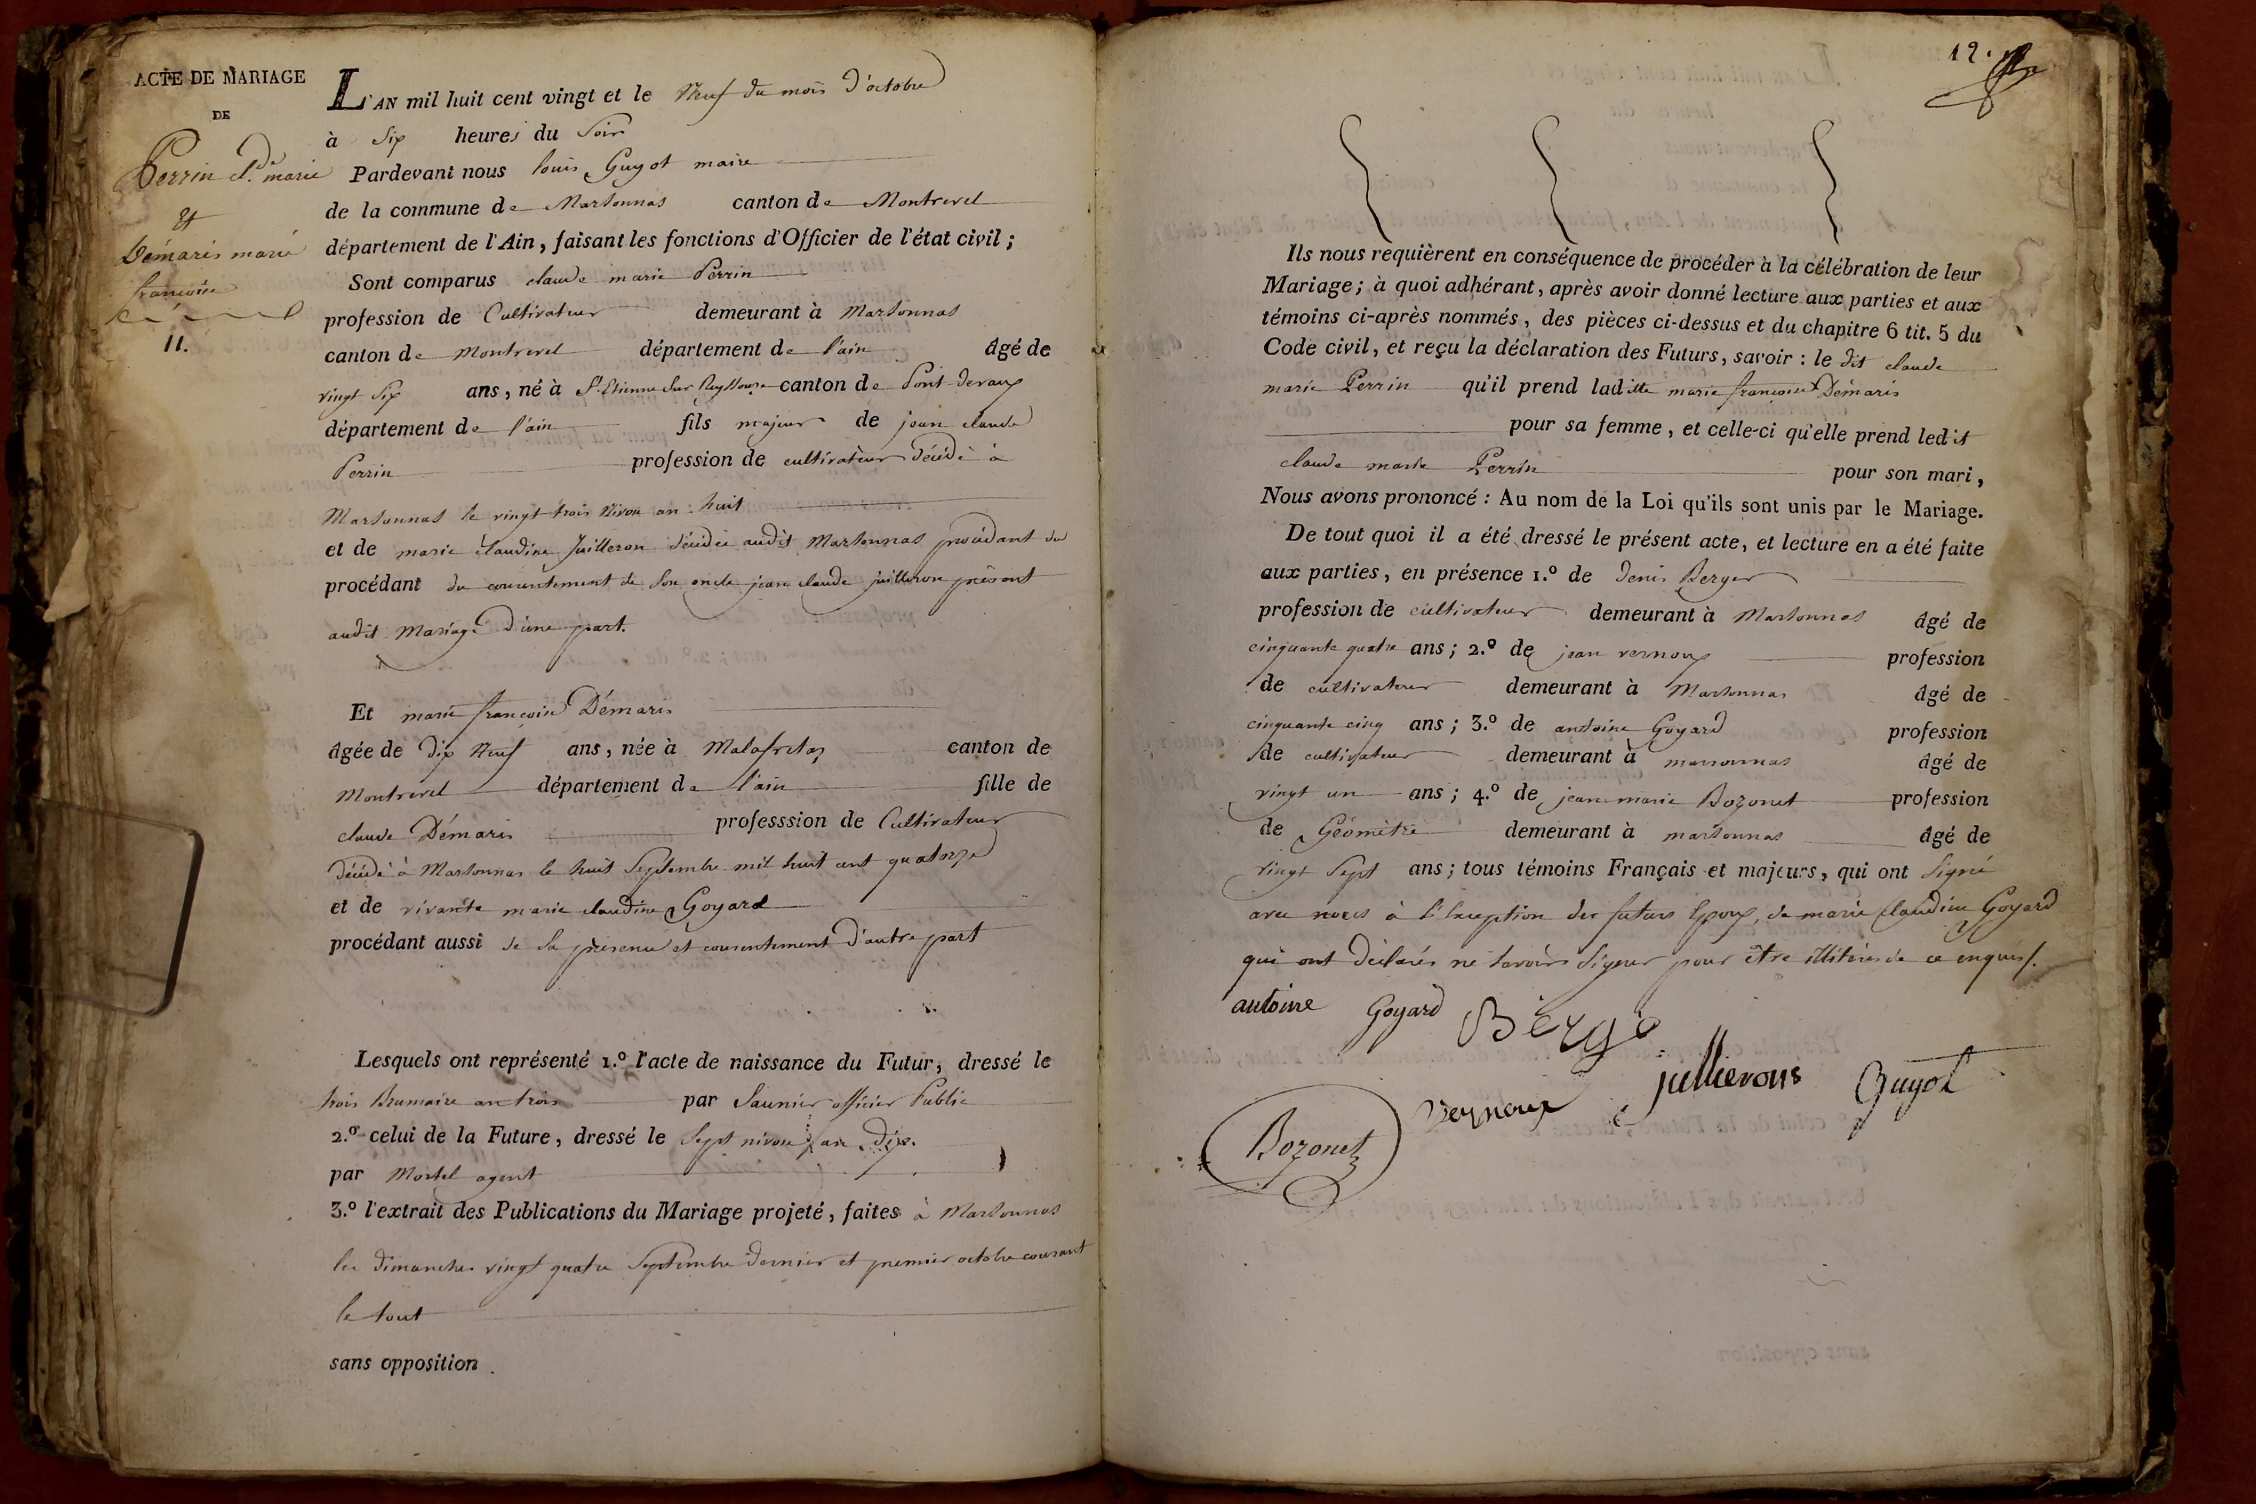 ACTE DE MARIAGE
DE
Perrin Cl.de marie
et
Démaris marie
françoise
11.
L'AN mil huit cent vingt et le Neuf du mois d'octobre
à Six heures du Soir
Pardevant nous louis Guyot maire
de la commune de Marsonnas canton de Montrevel
département de l'Ain, faisant les fonctions d'Officier de l'état civil;
Sont comparus claude marie Perrin
profession de Cultivateur demeurant à Marsonnas
canton de Montrevel département de l'ain âgé de
vingt Six ans, né à St. Etienne Sur Reyssouze canton de Pont-devaux
département de l'ain fils majeur de jean claude
Perrin profession de cultivateur décédé à
Marsonnas le vingt trois Nivose an huit
et de marie claudine Juilleron décédée audit Marsonnas procédant du
procédant du consentement de Son oncle jean claude juilleron présent
audit Mariage d'une part.
Et marie françoise Démaris
âgée de dix Neuf ans, née à Malafretaz canton de
Montrevel département de l'ain fille de
claude Démaris professsion de Cultivateur
décédé à Marsonnas le huit Septembre mil huit cent quatorze
et de vivante marie claudine Goyard
procédant aussi de Sa présence et consentement d'autre part
Lesquels ont représenté 1.º l'acte de naissance du Futur, dressé le
trois Brumaire an trois par Saunier officier Public
2.º celui de la Future, dressé le Sept nivose an Dix.
par Mortel agent
3.º l'extrait des Publications du Mariage projeté, faites à Marsonnas
les dimanches vingt quatre Septembre dernier et premier octobre courant
le tout
sans opposition.
12.
Ils nous requièrent en conséquence de procéder à la célébration de leur
Mariage; à quoi adhérant, après avoir donné lecture aux parties et aux
témoins ci-après nommés, des pièces ci-dessus et du chapitre 6 tit. 5 du
Code civil, et reçu la déclaration des Futurs, savoir: le dit claude
marie Perrin qu'il prend laditte marie françoise Démaris
pour sa femme, et celle-ci qu'elle prend ledit
claude marie Perrin pour son mari,
Nous avons prononcé: Au nom de la Loi qu'ils sont unis par le Mariage.
De tout quoi il a été dressé le présent acte, et lecture en a été faite
aux parties, en présence 1.º de denis Berger
profession de cultivateur demeurant à Marsonnas âgé de
cinquante quatre ans; 2.º de jean vernoux profession
de cultivateur demeurant à Marsonnas âgé de
cinquante cinq ans; 3.º de antoine Goyard profession
de cultivateur demeurant à marsonnas âgé de
vingt un ans; 4.º de jean marie Bozonet profession
de Géomètre demeurant à marsonnas âgé de
vingt Sept ans; tous témoins Français et majeurs, qui ont Signé
avec nous à l'Exception des futurs Epoux, de marie claudine Goyard
qui ont déclarés ne Savoir Signer pour être illitérés de ce enquis.
antoine Goyard Bergé
jullierons Guyot
Bozonet Vernoux